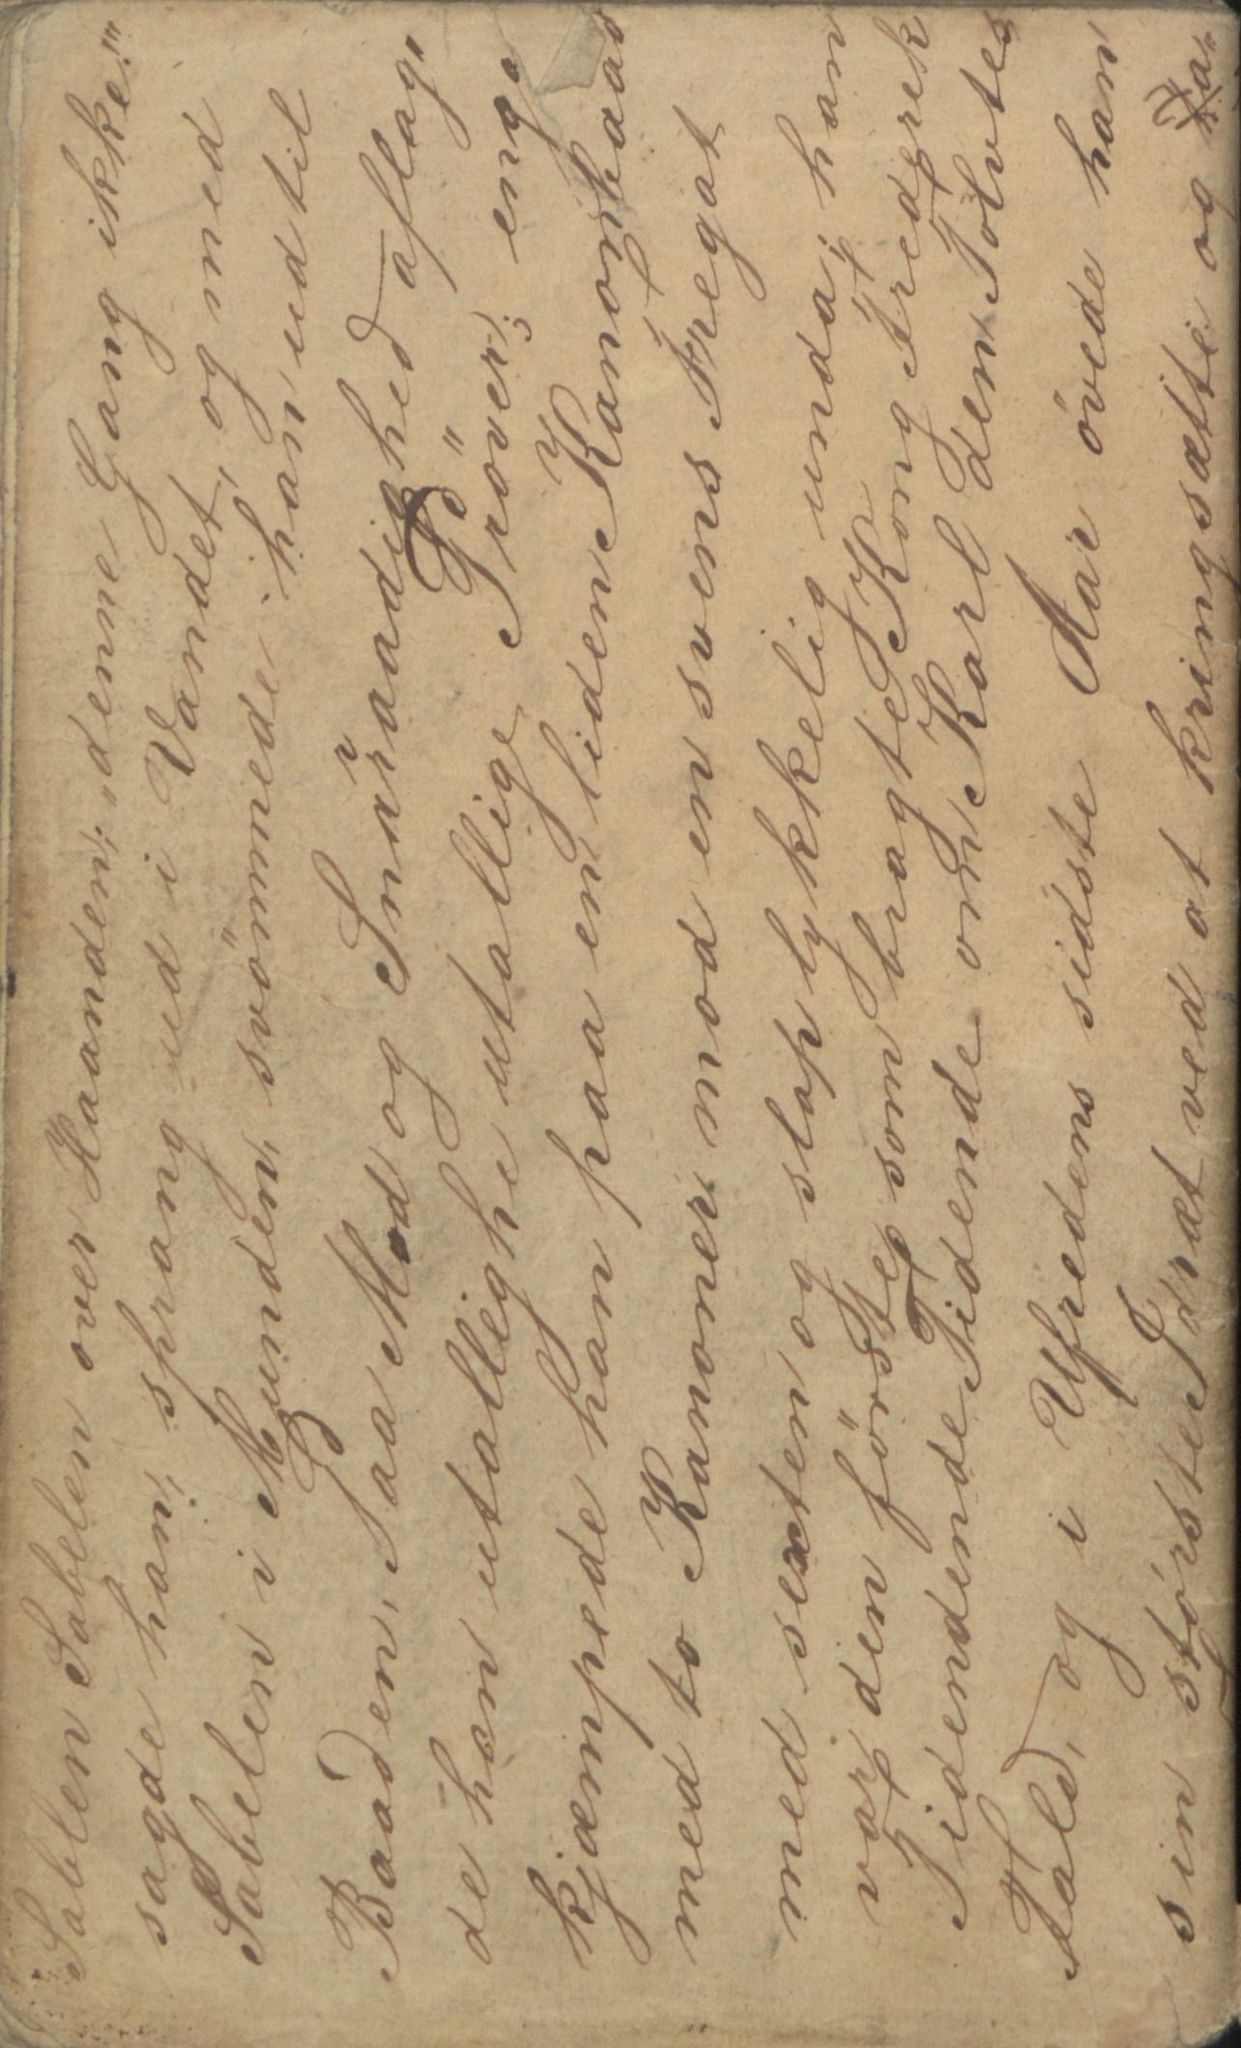 Sablen Sablen over Haanden, denne Gang ikke"
sagde han, sprang ud i Vandet, og med
Sablen i Munden, svömmede han ud til
Baaden, Paa Mod og Snarraadighed aflag"
de han utallighe utallige Pröver; eng
kjæmpede han paa en liden Kanonbaad
med to Kanoner mod en svens Fregat
med sexten og slap lykkelig unda; han
var den förste som bragte Kong Fredrek
Tidendende Tidende om Karl den Tolvtes
Fald, og i Ufredens sidste Aar óvede han
sin störste Idræt ved at kringsætte og